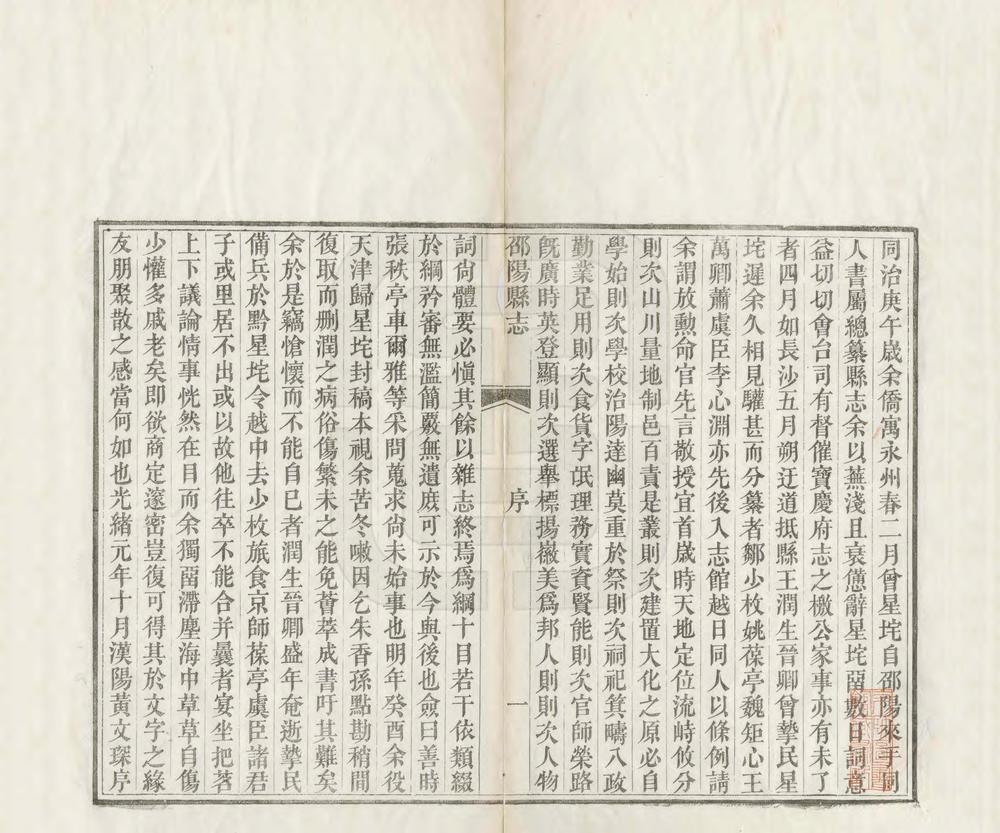 同治庚午歲余僑寓永州春二月曾星垞自邵陽來手同
人書屬總纂縣志余以蕪淺且衰憊辭星垞留數日詞意
益切切會台司有督催寶慶府志之檄公家事亦有未了
者四月如長沙五月朔迂道抵縣王潤生晉卿曾摯民星
垞遲余久相見驩甚而分纂者鄒小枚姚葆亭魏矩心王
萬卿蕭虞臣李心淵亦先後入志館越日同人以條例請
余謂放勳命官先言敬授宜首歲時天地定位流峙攸分
則次山川量地制邑百責是叢則次建置大化之原必自
學始則次學校治陽達幽莫重於祭則次祠祀箕疇八政
勤業足用則次食貨字氓理務實資賢能則次官師榮路
旣廣時英登顯則次選舉標揚嶶美爲邦人則則次人物
邵陽縣志 序 一
詞尙體要必愼其餘以雜志終焉爲綱十目若干依類綴
於綱矜審無濫簡覈無遺庶可示於今與後也僉曰善時
張秩亭車爾雅等釆問蒐求尙未始事也明年癸酉余役
天津歸星垞封稿本視余苦冬嗽因乞朱香孫點勘稍間
復取而删潤之病俗傷繁未之能免薈萃成書吁其難矣
余於是竊愴懷而不能自已者潤生晉卿盛年奄逝摯民
備兵於黔星垞令越中去少枚旅食京師葆亭虞臣諸君
子或里居不出或以故他往卒不能合并曩者宴坐把茗
上下議論情事恍然在目而余獨留滯塵海中草草自傷
少懽多戚老矣即欲商定邃密豈復可得其於文字之緣
友朋聚散之感當何如也光緒元年十月漢陽黃文琛序